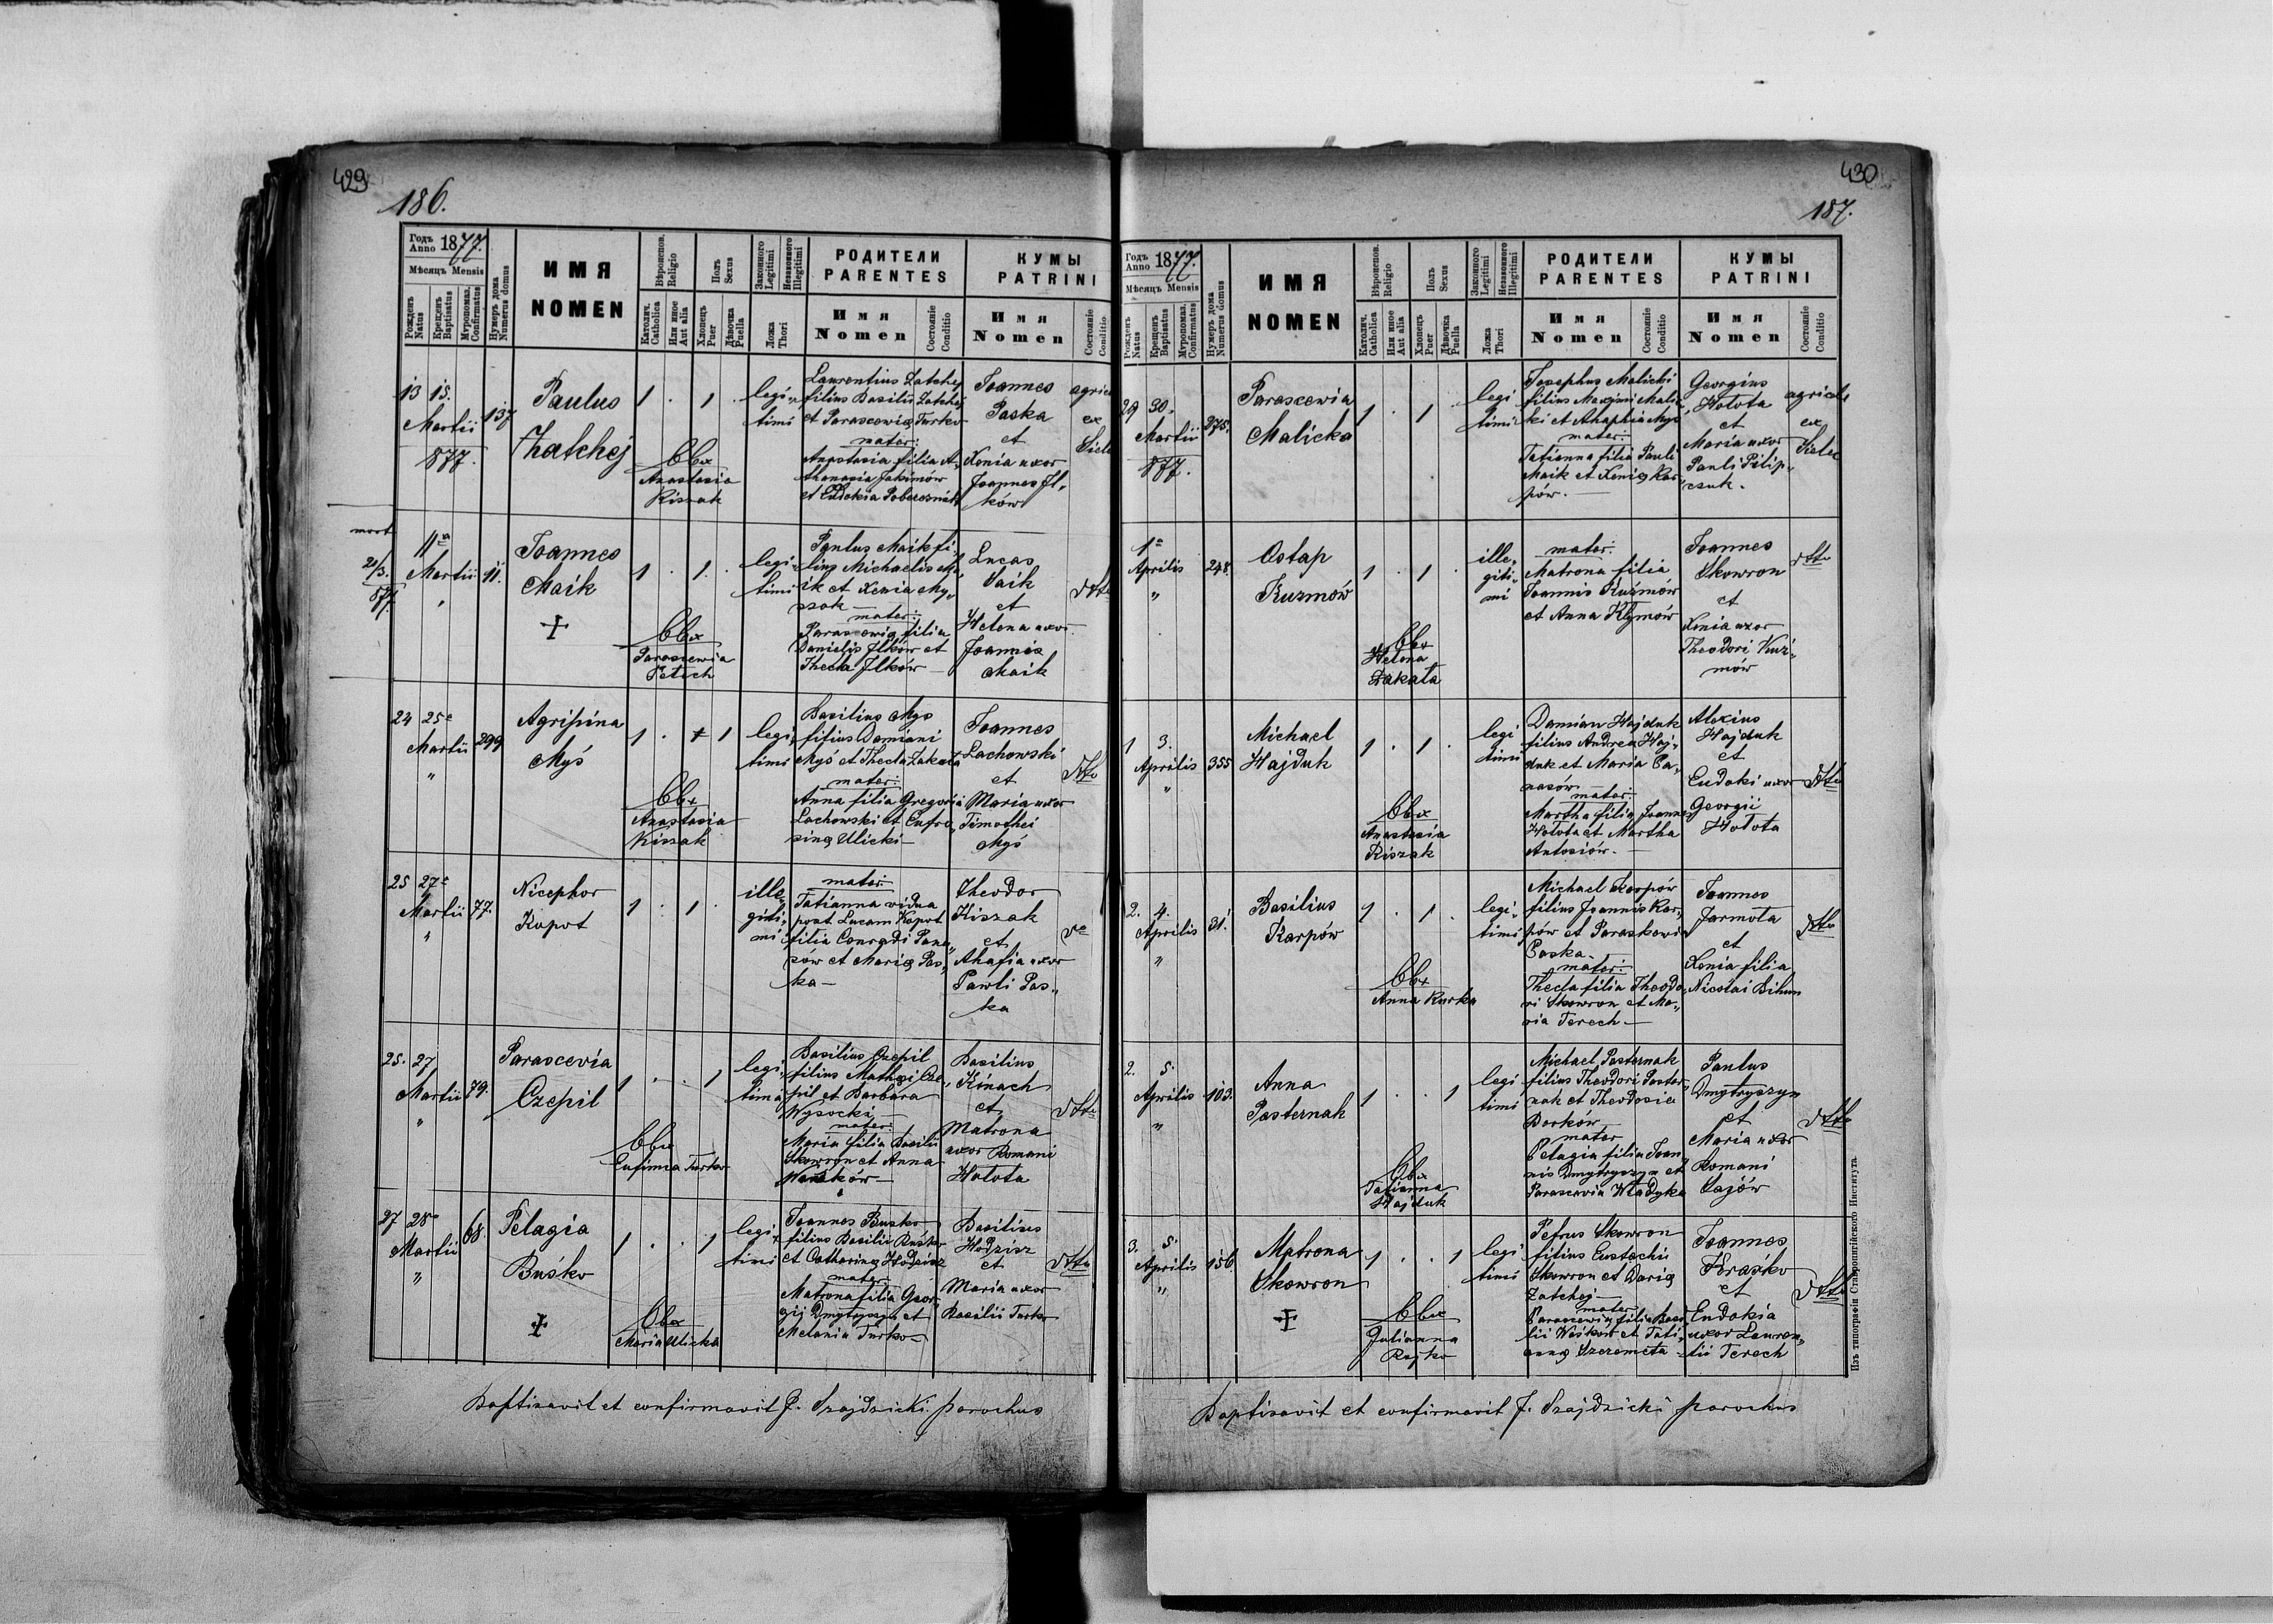 429
186.
Годъ Anno 1877.
Мѣсяцъ Mensis
Рожденъ Natus
Крещенъ Baptisatus
Мѵропомаз. Confirmatus
Нумеръ дома Numerus domus
ИМЯ
NOMEN
Вѣроисп. Religio
Католич. Catholica
Или иное Aut alia
Полъ Sexus
Хлопецъ Puer
Дѣвочка Puella
Законного Legitimi
Незаконного Illegitimi
Ложа Thori
РОДИТЕЛИ
PARENTES
Имя
Nomen
Состояніе Conditio
КУМЫ
PATRINI
Имя
Nomen
Состояніе Conditio
13 15.
Martii
877.
137
Paulus
Zhatchej
1 . 1 .
Obx
Anastasia
Kiszak
legi-
timi
Laurentius Zatchej
filius Basilii Zatchej
et Parascevia Turko
mater:
Anastasia filia A-
thanasia Jakimów
et Eudokia
Joannes
Paska
et
Xenia uxor
Joannes Il-
ków
agricol
ex
mort
21/3.
877
11a
Martii
"
11.
Joannes
Maik
1 . 1 .
Obx
Parascewia
Petech
legi-
timi
Paulus Maik fi-
lius Michaelis Ma-
ik et Xenia My-
szak
mater:
Parascevia filia
Danielis Ilków et
Thecla Ilków
Lucas
Vaik
et
Helena uxor
Joannis
Maik
dtto
24 25a
Martii
"
299
Agripina
Myś
1 . 1
Obx
Anastasia
Kiszak
legi-
timi
Basilius Mys
filius Damiani
Myś et Thecla Zakała
mater:
Anna filia Gregorii
Lachowski et Eufro-
sina Ulicki
Joannes
Lachowski
et
Maria uxor
Timothei
Myś
dtto
25 27a
Martii
"
77.
Nicephor
Kopot
1 . 1 .
ille-
giti-
mi
mater:
Tatianna vidua
post Lucam Kopot
filia Conradi Pana-
sów et Maria Pas-
ka
Theodor
Kiszak
et
Ahafia uxor
Pawli Pas-
ka
do
25. 27
Martii
"
79.
Parascevia
Czepil
1 . . 1
Obx
Eufimia Turko
legi-
timi
Basilius Czepil
filius Mathei Cze-
pil et Barbara
Wysocki
mater:
Maria filia Basilii
Skowron et Anna
Basilius
Kinach
et
Matrona
uxor Romani
Hołota
dtto
27 28a
Martii
"
68.
Pelagia
Buśko
1 . . 1
Obx
Maria Ulicka
legi-
timi
Joannes Busko
filius Basilii Buśko
et Catharina Hodzisz
mater:
Matrona filia Geor-
gij Dmytryszyn et
Melania Turko
Basilius
Hodzisz
et
Maria uxor
Basilii Turko
dtto
Baptisavit et confirmavit J. Szajdzicki parochus
430
187.
Годъ Anno 1877.
Мѣсяцъ Mensis
Рожденъ Natus
Крещенъ Baptisatus
Мѵропомаз. Confirmatus
Нумеръ дома Numerus domus
ИМЯ
NOMEN
Вѣроисп. Religio
Католич. Catholica
Или иное Aut alia
Полъ Sexus
Хлопецъ Puer
Дѣвочка Puella
Законного Legitimi
Незаконного Illegitimi
Ложа Thori
РОДИТЕЛИ
PARENTES
Имя
Nomen
Состояніе Conditio
КУМЫ
PATRINI
Имя
Nomen
Состояніе Conditio
29 30.
Martii
877.
275.
Parascewia
Malicka
1 . 1 .
legi
timi
Josephus Malicki
filius Maximi Malic-
ki et Ahaphia Mys
mater:
Tatianna filia Pauli
Maik et Xenia Kar-
pów.
Georgius
Hołota
et
Maria uxor
Pauli Pilip-
czuk.
agricola
ex
1a
Aprilis
"
248.
Ostap
Kuzmów
1 . 1 .
Obx
Helena
Zakała
ille-
giti-
mi
mater:
Matrona filia
Joannis Kuźmów
et Anna Klymów
Joannes
Skowron
et
Xenia uxor
Theodori Kuź-
mów
dtto
1 3.
Aprilis
"
355
Michael
Hajduk
1 . 1 .
Obx
Anastasia
Kiszak
legi
timi
Damian Hajduk
filius Andrea Haj-
duk et Maria Pa-
nasów
mater:
Martha filia Joannes
Hołota et Martha
Antosiów.
Alexius
Hajduk
et
Eudoki uxor
Georgii
Hołota
dtto
2. 4.
Aprilis
"
31.
Basilius
Karpów
1 . 1 .
Obx
Anna Kurka
legi-
timi
Michael Karpów
filius Joannis Kar-
pów et Paraskewia
Paska.
mater:
Thecla filia Theodo-
ri Skowron et Ma-
ria Terech
Joannes
Jarmoła
et
Xenia filia
Nicolai Bihun
dtto
2. 5.
Aprilis
"
103.
Anna
Pasternak
1 . . 1
Obx
Tatianna
Hajduk
legi
timi
Michael Pasternak
filius Theodori Paster-
nak et Theodosia
Borków
mater
Pelagia filia Joan-
nis Dmytryszyn et
Parascevia Władyka
Paulus
Dmytryszyn
et
Maria uxor
Romani
Sajów
dtto
3. 5.
Aprilis
"
156
Matrona
Skowron
1 . . 1
Obx
Julianna
Rojko
legi
timi
Petrus Skowron
filius Eustachii
Skowron et Daria
Zatchej
mater
Parascewia filia Basi-
lii Waśków et Tati-
anna Szeremeta
Joannes
Foraśko
et
Eudokia
uxor Lauren-
tii Terech
dtto
Baptisavit et confirmavit J. Szajdzicki parochus
Изъ типографіи Ставропигійского Института